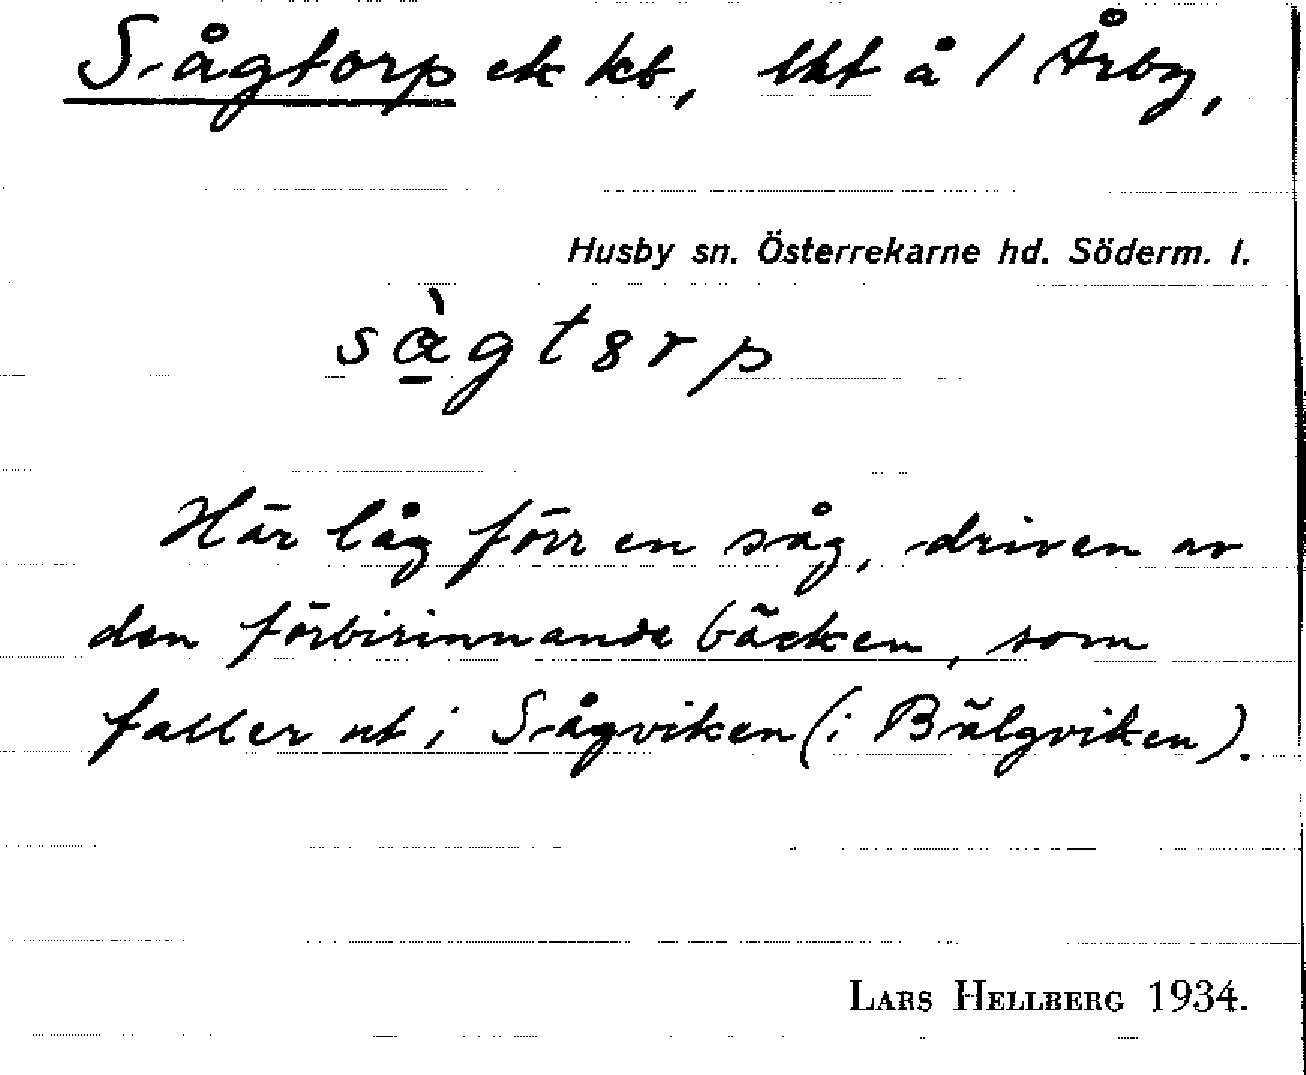 Sågtorp ek kb, lht å 1 Årby,
Husby sn. Österrekarne hd. Söderm. l.
sàgt8rp
Här låg förr en såg, driven av
den förbirinnande bäcken, som
faller ut i Sågviken (i Bälgviken).
LARS HELLBERG 1934.